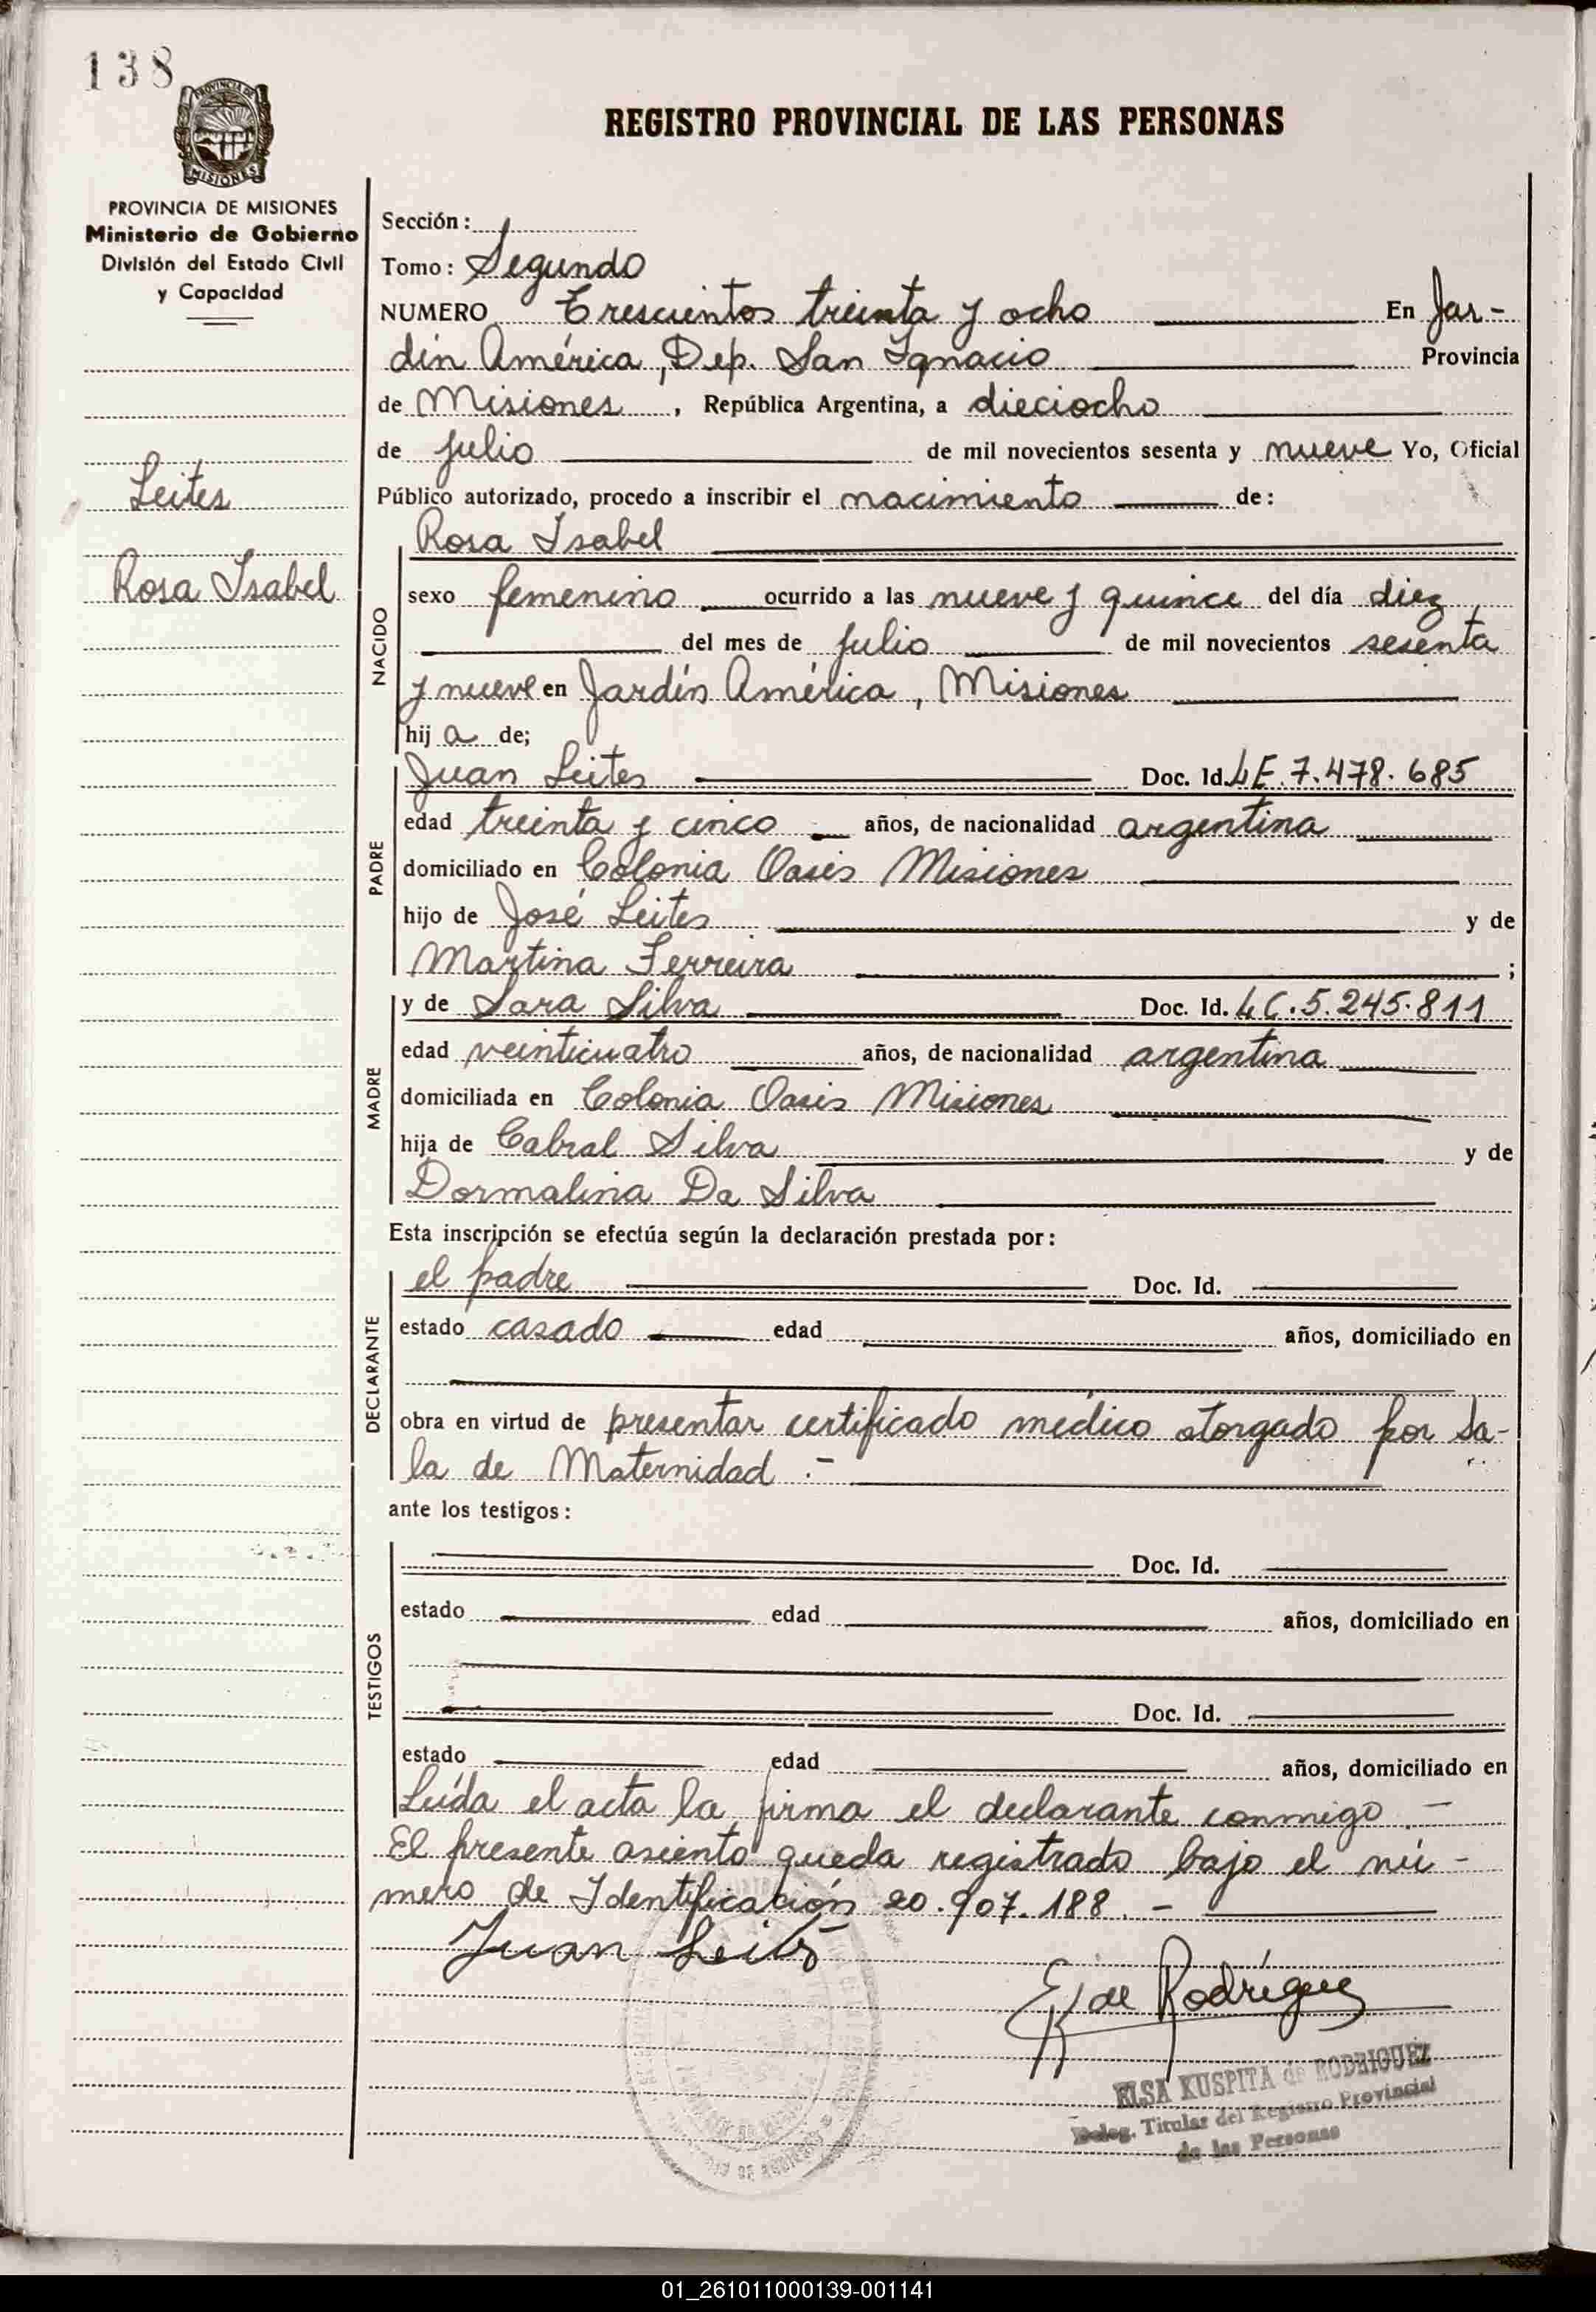 138
PROVINCIA DE MISIONES
PROVINCIA DE MISIONES
Ministerio de Gobierno
División del Estado Civil
y Capacidad
Leites
Rosa Isabel
REGISTRO PROVINCIAL DE LAS PERSONAS
Sección:
Tomo: Segundo
NUMERO Trescientos treinta y ocho En Jar-
dín América, Dep. San Ignacio Provincia
de Misiones, República Argentina, a dieciocho
de julio de mil novecientos sesenta y nueve Yo, Oficial
Público autorizado, procedo a inscribir el nacimiento de:
Rosa Isabel
NACIDO
sexo femenino ocurrido a las nueve y quince del día diez
del mes de julio de mil novecientos sesenta
y nueve en Jardín América, Misiones
hij a de;
PADRE
Juan Leites Doc. Id. LE.7.478.685
edad treinta y cinco años, de nacionalidad argentina
domiciliado en Colonia Oasis Misiones
hijo de José Leites y de
Martina Ferreira ;
MADRE
y de Sara Silva Doc. Id. LC.5.245.811
edad veinticuatro años, de nacionalidad argentina
domiciliada en Colonia Oasis Misiones
hija de Cabral Silva y de
Dormalina Da Silva
Esta inscripción se efectúa según la declaración prestada por:
DECLARANTE
el padre Doc. Id.
estado casado edad años, domiciliado en
obra en virtud de presentar certificado médico otorgado por Sa-
la de Maternidad.-
ante los testigos:
TESTIGOS
Doc. Id.
estado edad años, domiciliado en
Doc. Id.
estado edad años, domiciliado en
Leída el acta la firma el declarante conmigo.-
El presente asiento queda registrado bajo el nú-
mero de Identificación 20.907.188.-
Juan Leites
E K de Rodríguez
ELSA KUSPITA de RODRIGUEZ
Deleg. Titular del Registro Provincial
de las Personas
01_261011000139-001141